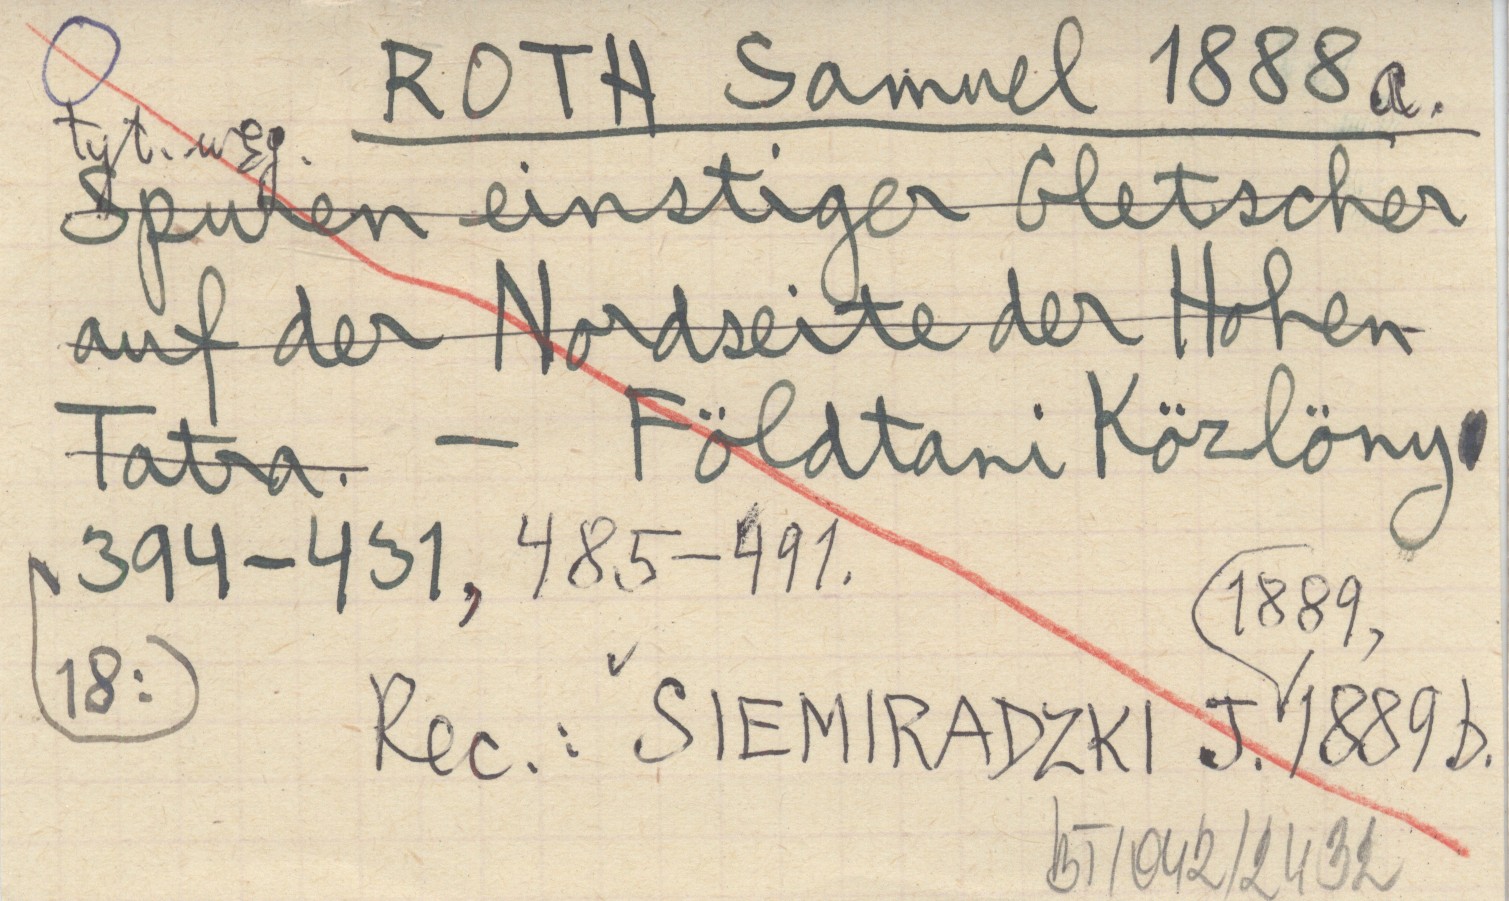 ROTH Samuel 1888a.
tyt. węg.
Spuren einstiger Gletscher
auf der Nordseite der Hohen
Tatra. — Földtani Közlöny
394–431, 485–491.
18:
1889,
Rec.: SIEMIRADZKI J. 1889b.
BT/042/2432